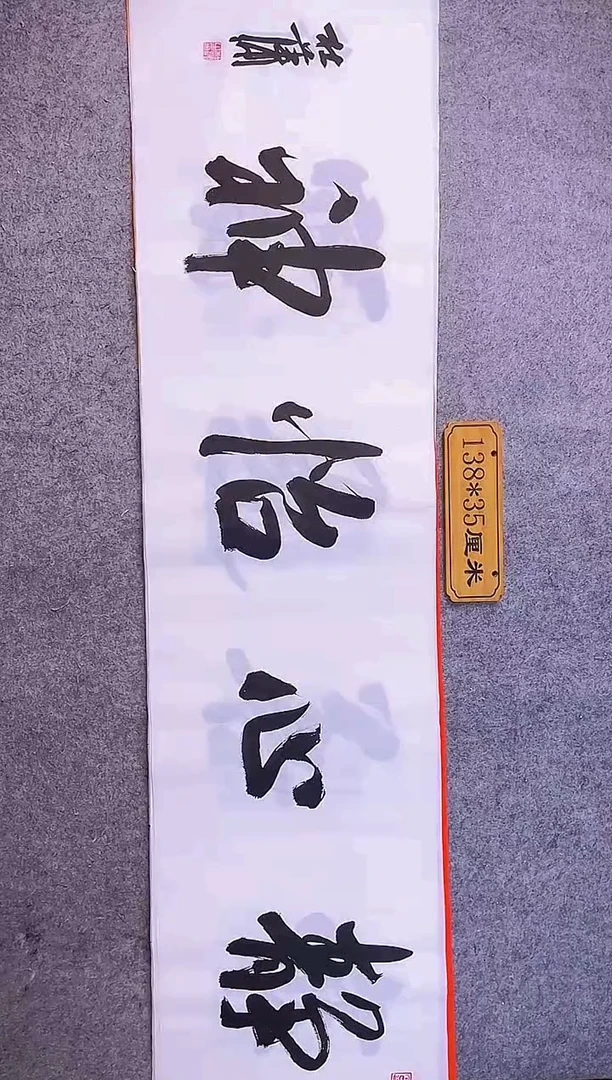 静心怡神
138*35厘米